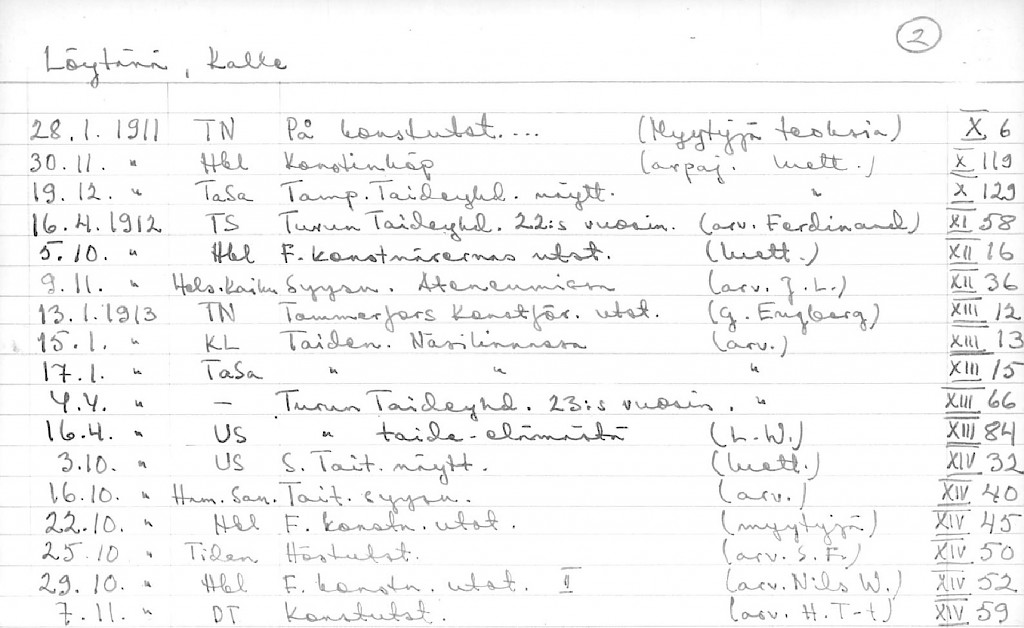 2
Löytänä, Kalle
28.1. 1911 TN På konstutst.... (Myytyjä teoksia) X 6
30.11. " Hbl Konstinköp (arpaj. luett.) X 119
19.12. " TaSa Tamp. Taideyhd. näytt. " X 129
16.4.1912 TS Turun Taideyhd. 22:s vuosin. (arv. Ferdinand) XI 58
5.10. " Hbl F. konstnärernas utst. (luett.) XII 16
9.11. " Hels.Kaiku Syysn. Ateneumissa (arv. J.L.) XII 36
13.1.1913 TN Tammerfors Konstför. utst. (G. Engberg) XIII 12
15.1. " KL Taiden. Näsilinnassa (arv.) XIII 13
17.1. " TaSa " " " XIII 15
4.4. " — Turun Taideyhd. 23:s vuosin. " XIII 66
16.4. " US " taide-elämästä (L.W.) XIII 84
3.10. " US S. Tait. näytt. (luett.) XIV 32
16.10. " Ham. San. Tait. syysn. (arv.) XIV 40
22.10. " Hbl F. konstn. utst. (myytyjä) XIV 45
25.10 " Tiden Höstutst. (arv. S.F.) XIV 50
29.10. " Hbl F. konstn. utst. II (arv. Nils W.) XIV 52
7.11. " DT Konstutst. (arv. H.T-t) XIV 59